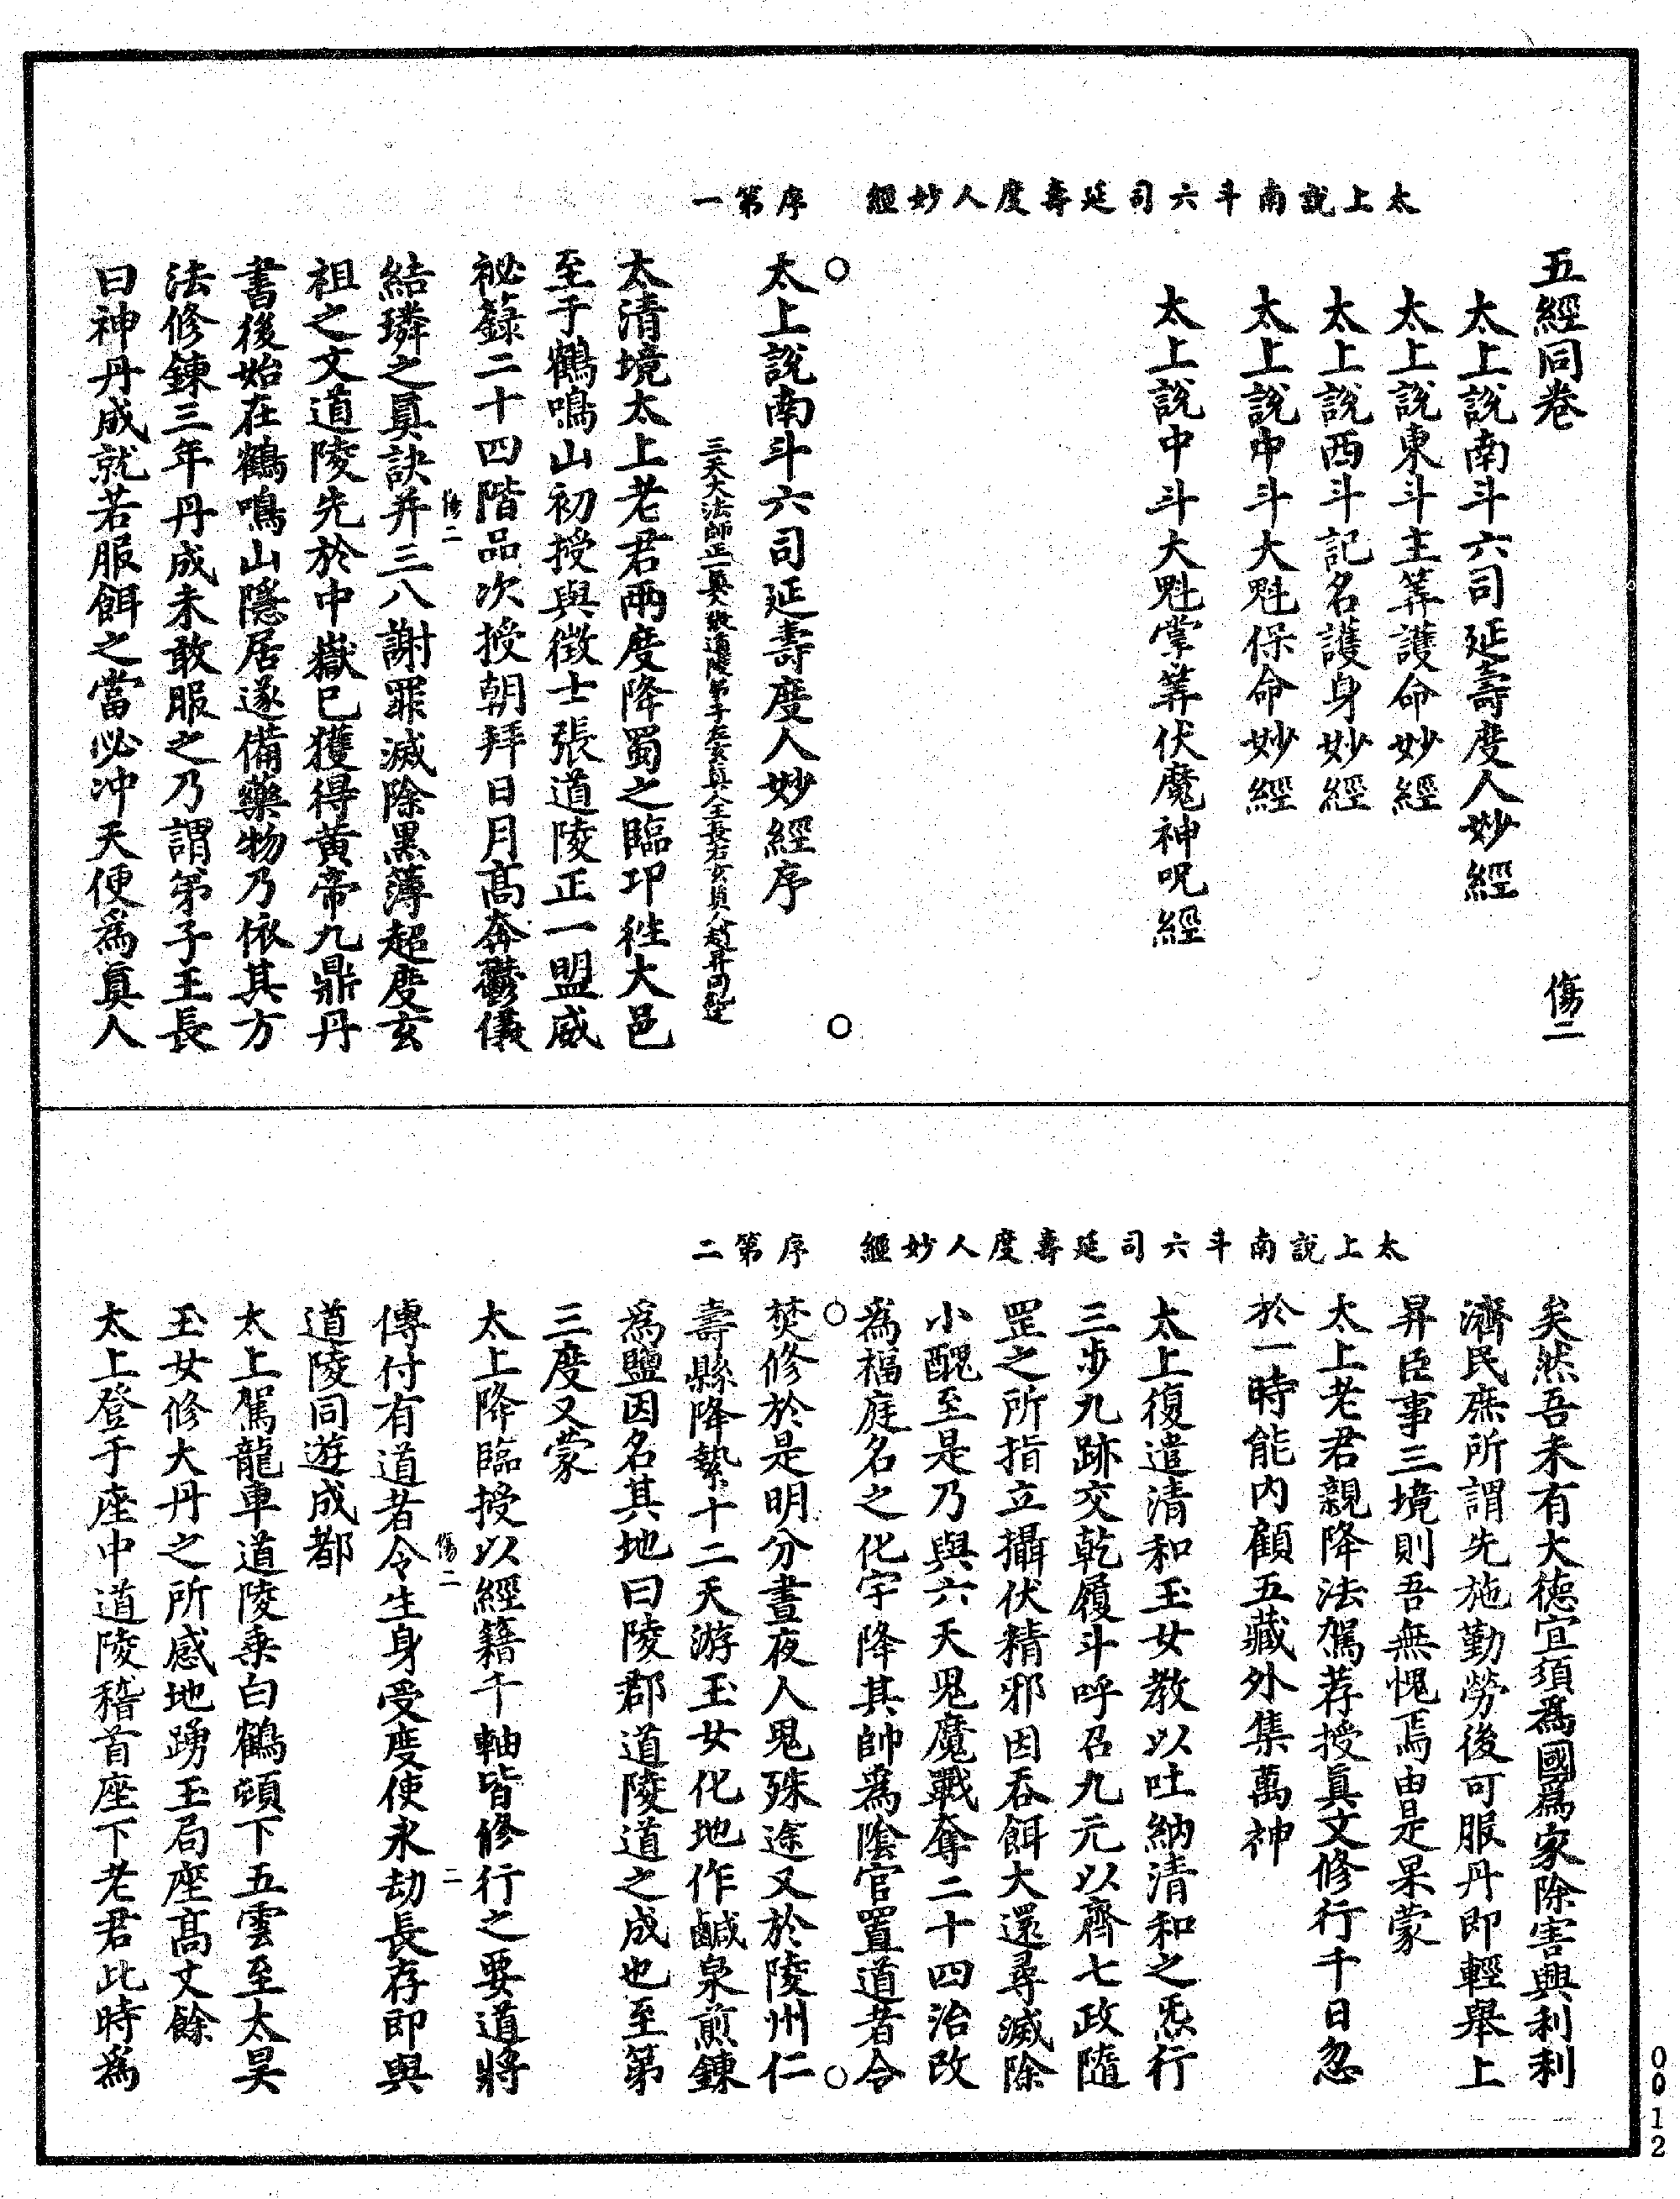 太上說南斗六司延壽度人妙經　序第一
五經同卷　傷二
太上說南斗六司延壽度人妙經
太上說東斗主筭護命妙經
太上說西斗記名護身妙經
太上說中斗大魁保命妙經
太上說中斗大魁掌筭伏魔神呪經
太上說南斗六司延壽度人妙經序
三天大法師正一眞人張道陵弟子左玄眞人王長右玄眞人趙昇同歷
太清境太上老君兩度降蜀之臨邛徃大邑
至于鶴鳴山初授與徴士張道陵正一盟威
祕籙二十四階品次授朝拜日月高奔鬱儀
結璘之眞訣并三八謝罪滅除黑薄超度玄
傷二
祖之文道陵先於中嶽已獲得黃帝九鼎丹
書後始在鶴鳴山隱居遂備藥物乃依其方
法修鍊三年丹成未敢服之乃謂弟子王長
曰神丹成就若服餌之當必冲天便爲眞人
太上說南斗六司延壽度人妙經　序第二
矣然吾未有大德宜須爲國爲家除害興利利
濟民庶所謂先施勤勞後可服丹即輕舉上
昇臣事三境則吾無愧焉由是果蒙
太上老君親降法駕荐授眞文修行千日忽
於一時能内顧五藏外集萬神
太上復遣清和玉女教以吐納清和之炁行
三步九跡交乾履斗呼召九元以齊七政隨
罡之所指立攝伏精邪因吞餌大還尋滅除
小醜至是乃與六天鬼魔戰奪二十四治改
爲福庭名之化宇降其帥爲陰官置道者令
焚修於是明分晝夜人鬼殊途又於陵州仁
壽縣降縶十二天游玉女化地作鹹泉煎鍊
爲鹽因名其地曰陵郡道陵道之成也至第
三度又蒙
太上降臨授以經籍千軸皆修行之要道將
傳付有道者令生身受度使永劫長存即與
傷二
二
道陵同遊成都
太上駕龍車道陵乘白鶴頓下五雲至太昊
玉女修大丹之所感地踴玉局座高丈餘
太上登于座中道陵稽首座下老君此時爲
0012